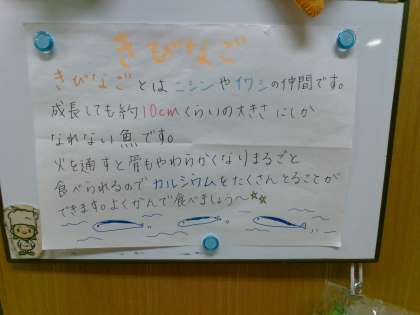 きびなご
きびなごとはニシンやイワシの仲間です。
成長しても約10cmくらいの大きさにしか
なれない魚です。
火を通すと骨もやわらかくなりまるごと
食べられるのでカルシウムをたくさんとることが
できます。よくかんで食べましょう〜☆☆